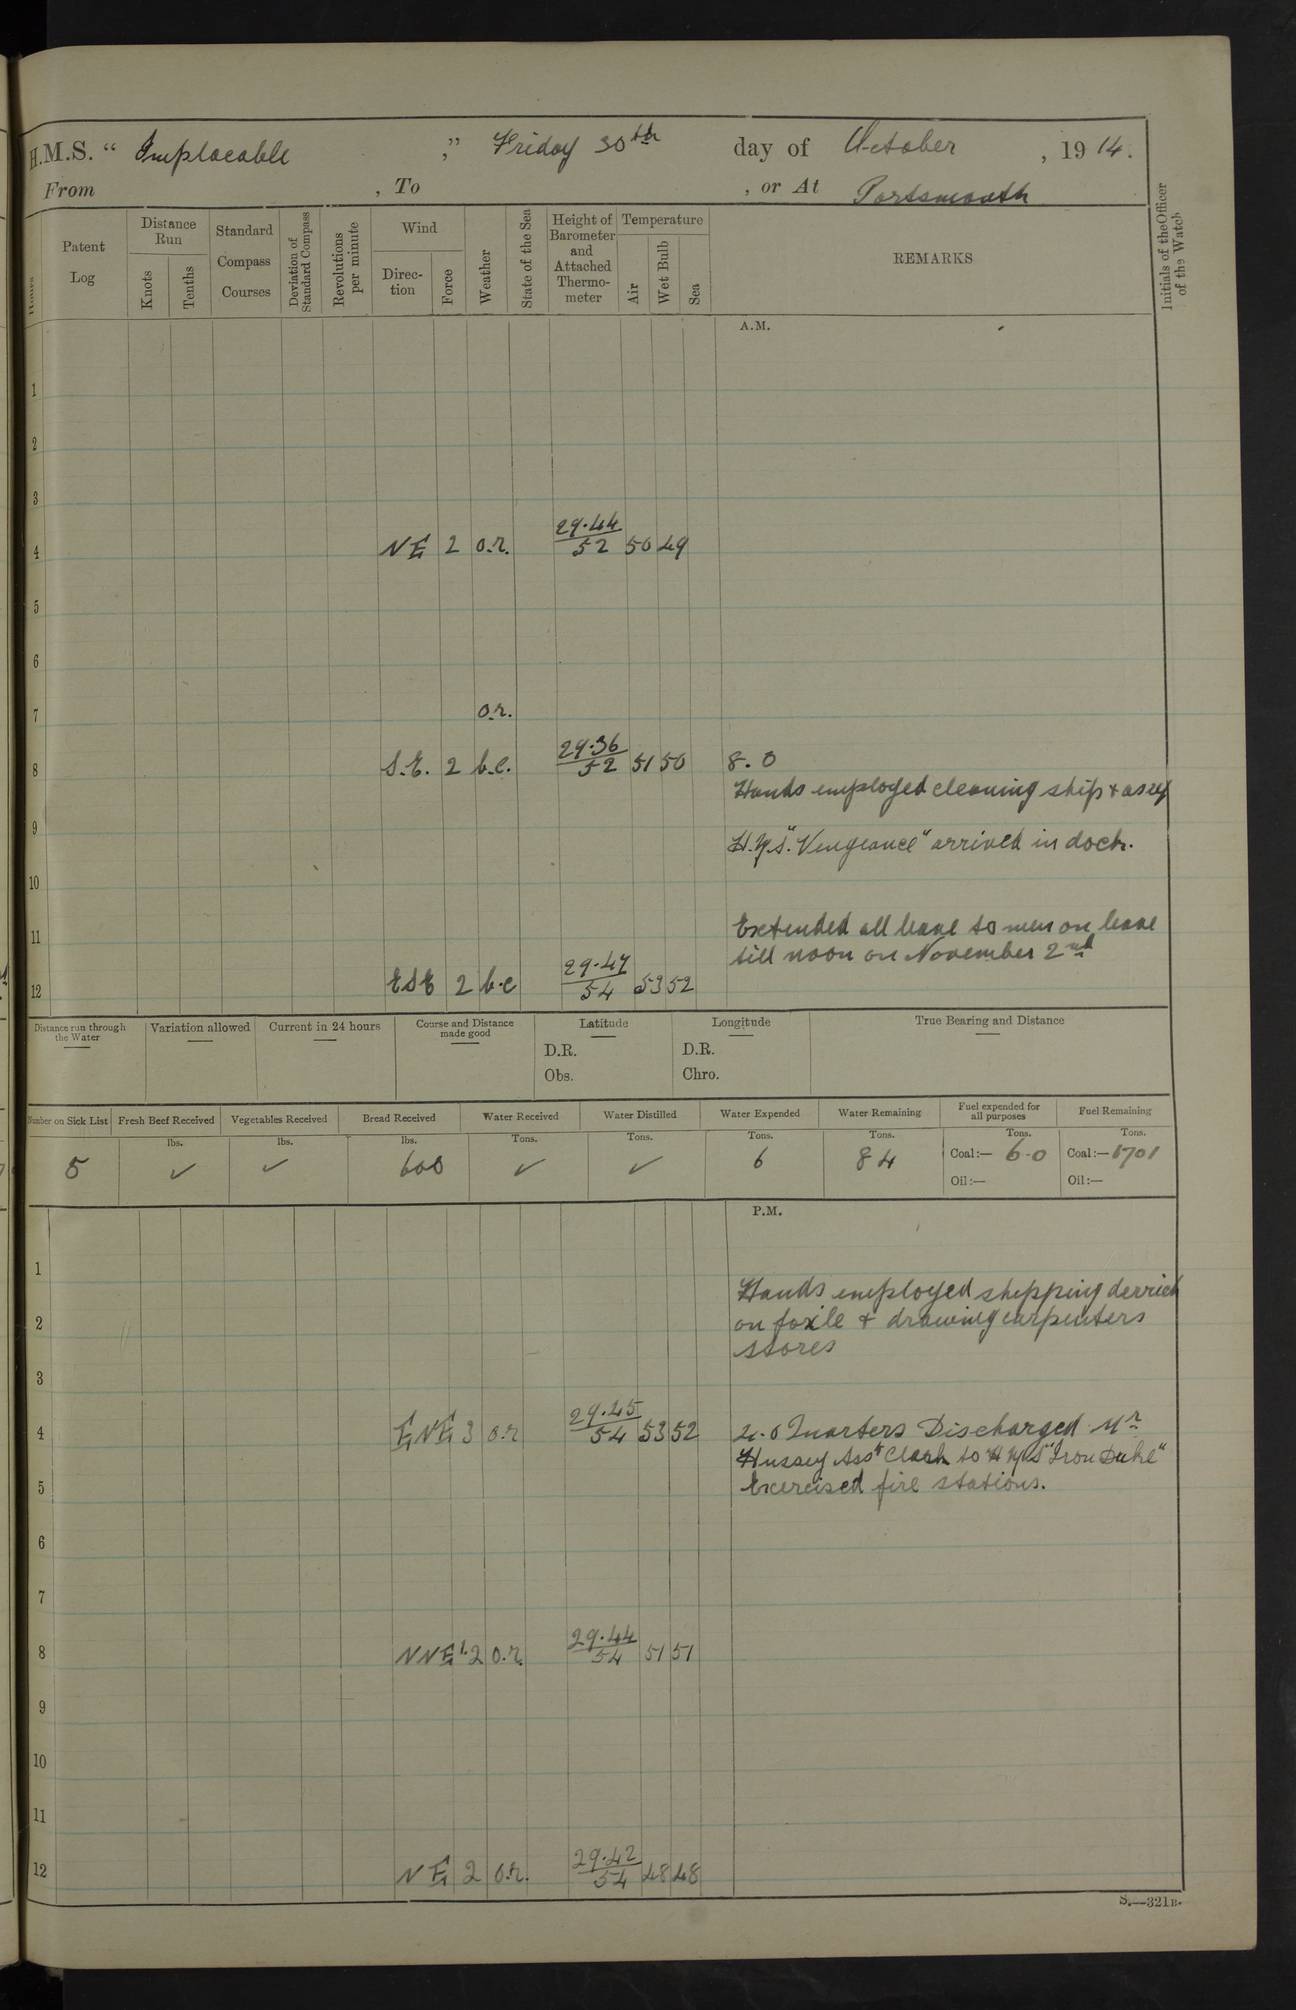 H.M.S. “ Implacable ,” Friday 30th day of October , 19 14.
From , To , or At Portsmouth
Hours
Patent Log
Distance Run
Knots
Tenths
Standard Compass Courses
Deviation of Standard Compass
Revolutions per minute
Wind
Direc-tion
Force
Weather
State of the Sea
Height of Barometer and Attached Thermo-meter
Temperature
Air
Wet Bulb
Sea
REMARKS
Initials of the Officer of the Watch
A.M.
1
2
3
4 NE 2 o.r. 29.44/52 50 49
5
6
7 o.r.
8 S.E. 2 b.c. 29.36/52 51 50 8.0
Hands employed cleaning ship &
9
H.M.S. "Vengeance" arrived in dock.
10
11 Extended all leave to men on leave
till noon on November 2nd
12 ESE 2 b.c 29.47/54 53 52
Distance run through the Water
Variation allowed
Current in 24 hours
Course and Distance made good
Latitude
D.R.
Obs.
Longitude
D.R.
Chro.
True Bearing and Distance
Number on Sick List Fresh Beef Received Vegetables Received Bread Received Water Received Water Distilled Water Expended Water Remaining Fuel expended for all purposes Fuel Remaining
lbs. lbs. lbs. Tons. Tons. Tons. Tons. Tons. Tons.
5 ✓ ✓ 600 ✓ ✓ 6 84 Coal:— 60 Coal:— 1701
Oil:— Oil:—
P.M.
1
Hands employed shipping derrick
2 on foxile & drawing carpenters
stores
3
4 ENE 3 o.r 29.45/54 53 52 4.0 Quarters Discharged Mr
Hussey Asst Clerk to H.M.S "Iron Duke"
5 Exercised fire stations.
6
7
8 NNE 1.2 o.r. 29.44/54 51 51
9
10
11
12 NE 2 o.r. 29.42/54 48 48
S.—321B.